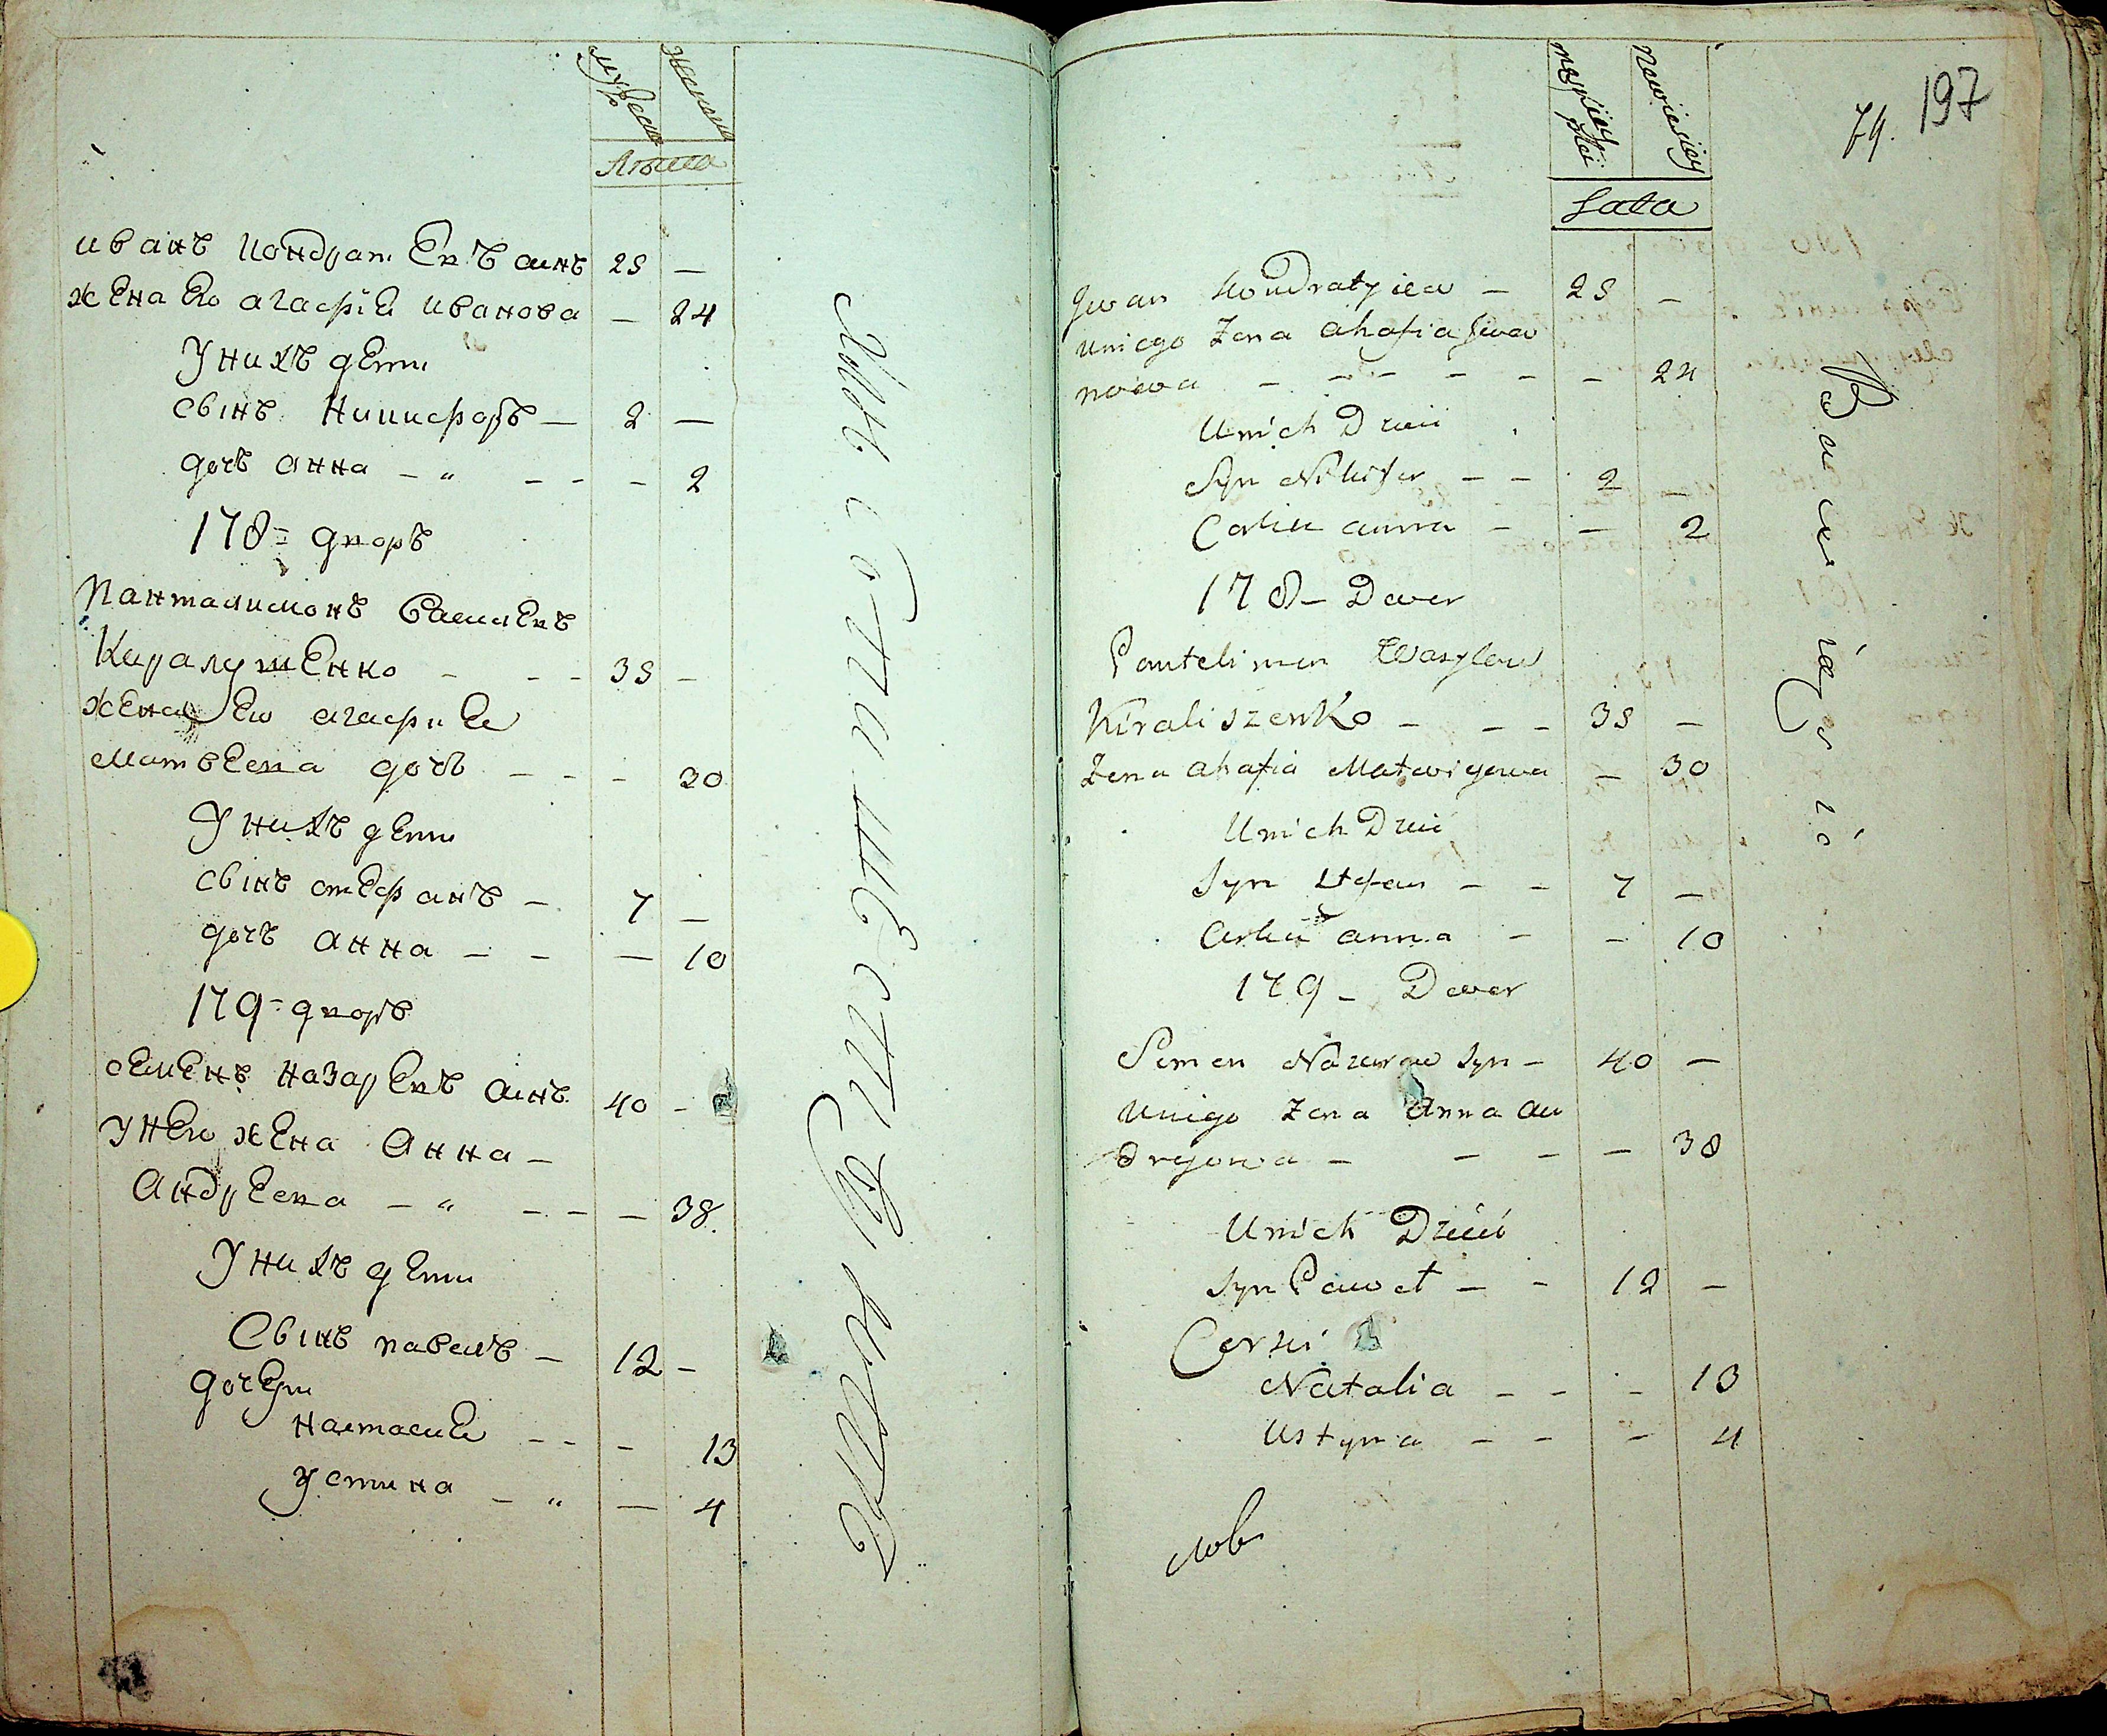 мужеска
женска
Лѣта
иванъ кондратЕвъ синъ 25 —
жЕна Ео агафиЕ иванова — 24
У нихъ дЕти
сынъ Никифоръ — 2 —
дочъ анна — „ — — — 2
178 = дворъ
пантилимонъ василЕвъ
КиралушЕнко — — — 35 —
жЕна Ео агафиЕ
матвЕева дочъ — — — 30
У нихъ дЕти
сынъ стЕфанъ — 7 —
дочъ анна — — — 10
179 = дворъ
сЕмЕнъ назарЕвъ синъ 40 —
у нЕго жЕна Анна —
АндрЕева — „ — — — 38.
У нихъ дЕти
Сынъ павелъ — 12 —
дочЕри
настасиЕ — — — 13
устина — „ — 4
197
79.
męskiey płci
niewieściey
Lata
Jwan Kondratyiew — 25 —
uniego Żena ahafia Jwa
nowa — — — — — — 24
Unich Dzieci
Syn Nikifer — — 2 —
Corka anna — — 2
178 — Dwor
Pantelimon Wasylow
Kiraliszenko — — — 35 —
Żena ahafia Matwiyewa — 30
Unich Dzieci
Syn Stefan — — 7 —
Corka anna — — 10
179 — Dwor
Semen Nazarow Syn — 40 —
Uniego Żena Anna an
dreyowa — — — — 38
Unich Dzieci
Syn Paweł — — 12 —
Corki
Natalia — — — 13
Ustyna — — — 4